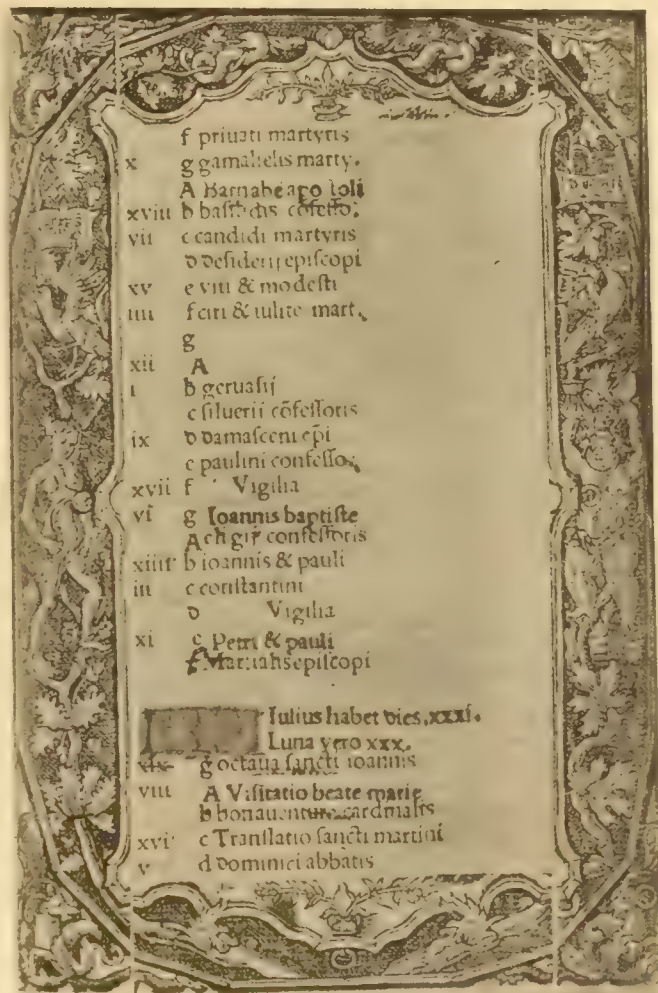 f priuati martyris
x g gamalielis marty.
A Barnabe apo
xviii b confesso.
vii c candidi martyris
d desiderij episcopi
xv e viti & modesti
iiii f ciri & iulite mart.
g
xii A
i b geruasij
c siluerii cōfessoris
ix d damasceni epi
e paulini confesso
xvii f Vigilia
vi g Ioannis baptiste
A confessoris
xiiii b ioannis & pauli
iii c constantini
d Vigilia
xi e Petri & pauli
f Martialis episcopi
Iulius habet dies .xxxi.
Luna vero xxx.
xix g octaua sancti ioannis
viii A Visitatio beate marie
b bonauenture cardinalis
xvi c Translatio sancti martini
v d dominici abbatis